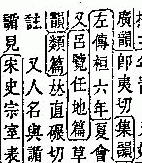 廣韻卽夷切集韻
左傳桓六年夏會
又呂覽任地篇草
韻類篇𠀤直碾切
註 又人名與
見宋史宗室表